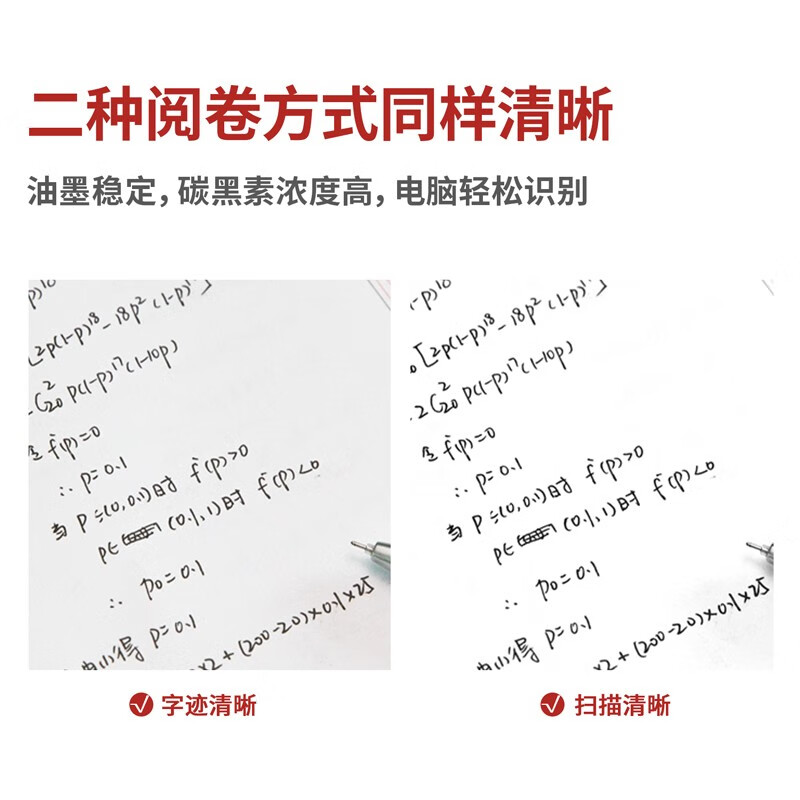 二种阅卷方式同样清晰
油墨稳定，碳黑素浓度高，电脑轻松识别
[2p(1-p)¹⁸-18p²(1-p)¹⁷]
C²₂₀ p(1-p)¹⁷(1-10p)
令 f'(p)=0
∴ p=0.1
当 P=(0,0.1)时 f'(p)>0
p∈ (0.1,1)时 f'(p)<0
∴ p₀=0.1
得 p=0.1
×2+(200-20)×0.1×25
字迹清晰
-p)¹⁰
[2p(1-p)¹⁸-18p²(1-p)¹⁷]
2C²₂₀ p(1-p)¹⁷(1-10p)
令 f'(p)=0
∴ p=0.1
当 P=(0,0.1)时 f'(p)>0
p∈ (0.1,1)时 f'(p)<0
∴ p₀=0.1
得 p=0.1
×2+(200-20)×0.1×25
扫描清晰